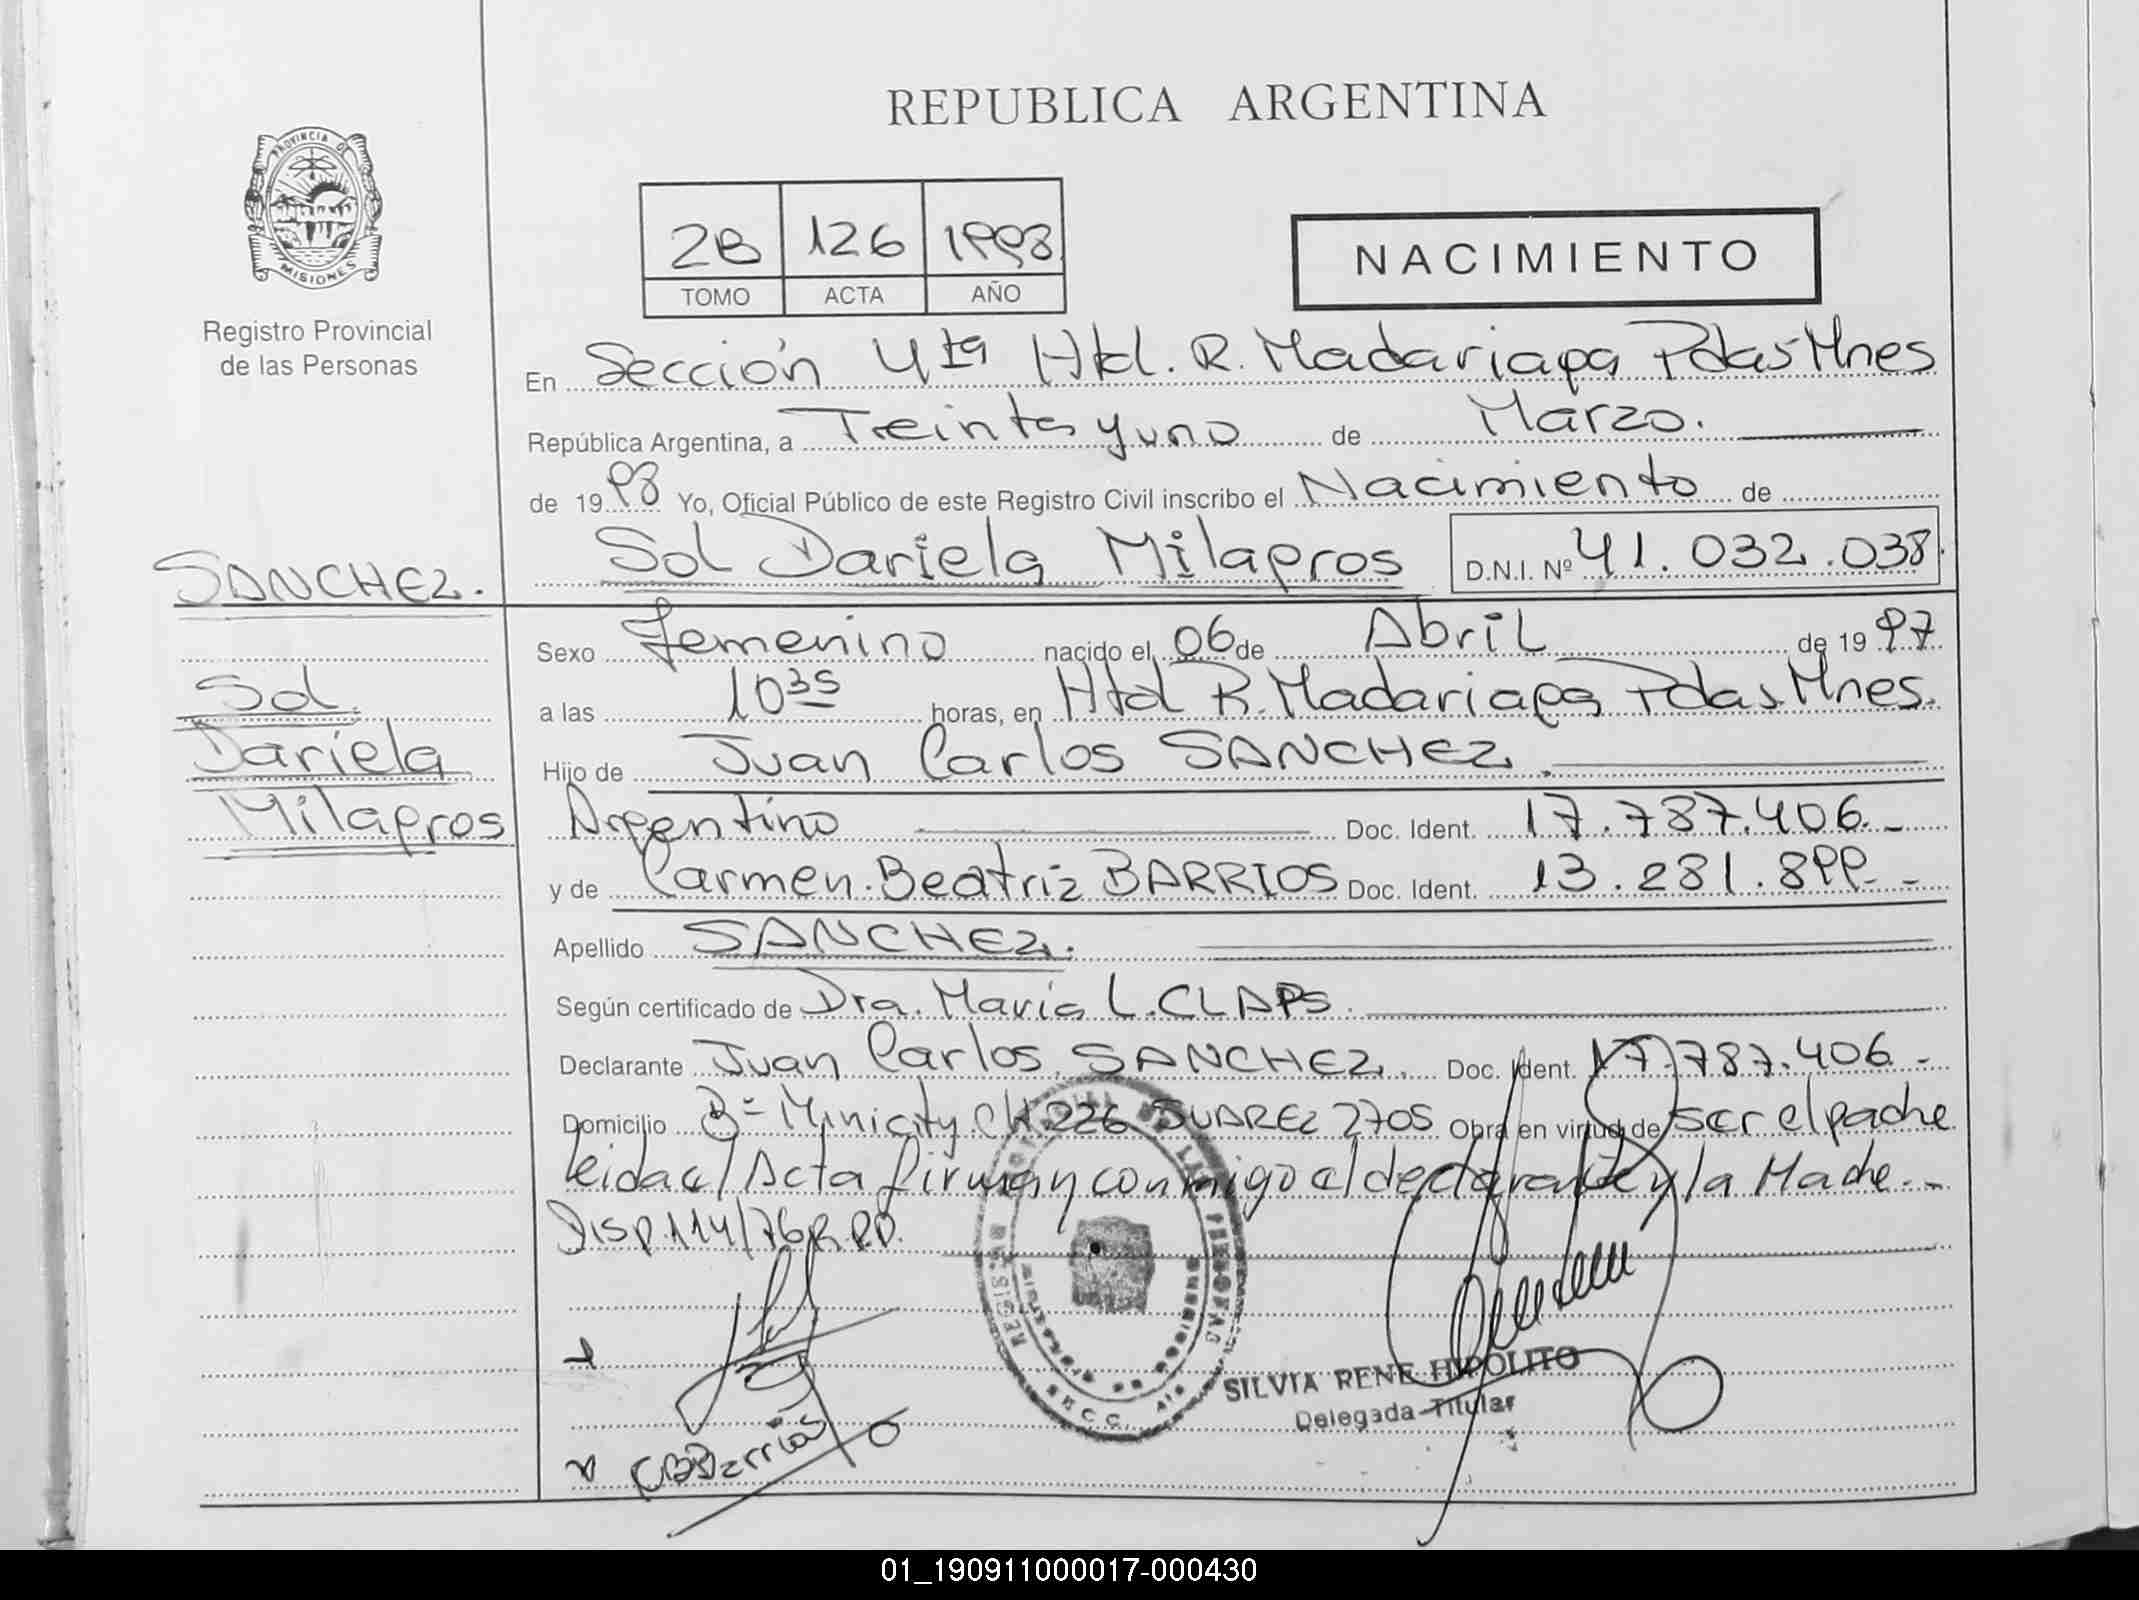 REPUBLICA ARGENTINA
PROVINCIA DE
MISIONES
Registro Provincial
de las Personas
2B 126 1998
TOMO ACTA AÑO
NACIMIENTO
En Sección 4ta Htal. R. Madariaga Pdas Mnes
República Argentina, a Treinta y uno de Marzo.
de 1998 Yo, Oficial Público de este Registro Civil inscribo el Nacimiento de
Sol Dariela Milagros D.N.I. Nº 41.032.038.
SANCHEZ.
Sol
Dariela
Milagros
Sexo femenino nacido el 06 de Abril de 1997
a las 10 35 horas, en Htal R. Madariaga Pdas Mnes.
Hijo de Juan Carlos SANCHEZ.
Argentino Doc. Ident. 17.787.406.-
y de Carmen Beatriz BARRIOS Doc. Ident. 13.281.899.-
Apellido SANCHEZ.
Según certificado de Dra. Maria L. CLAPS.
Declarante Juan Carlos SANCHEZ. Doc. Ident. 17.787.406.-
Domicilio Bº Minicity CH 226 SUAREZ 2705 Obra en virtud de ser el padre
leida el Acta firman conmigo el declarante y la Madre.-
Disp. 114/76 R.P.P.
SILVIA RENE HIPOLITO
Delegada Titular
CBBarrios
SECC. 4ta
01_190911000017-000430